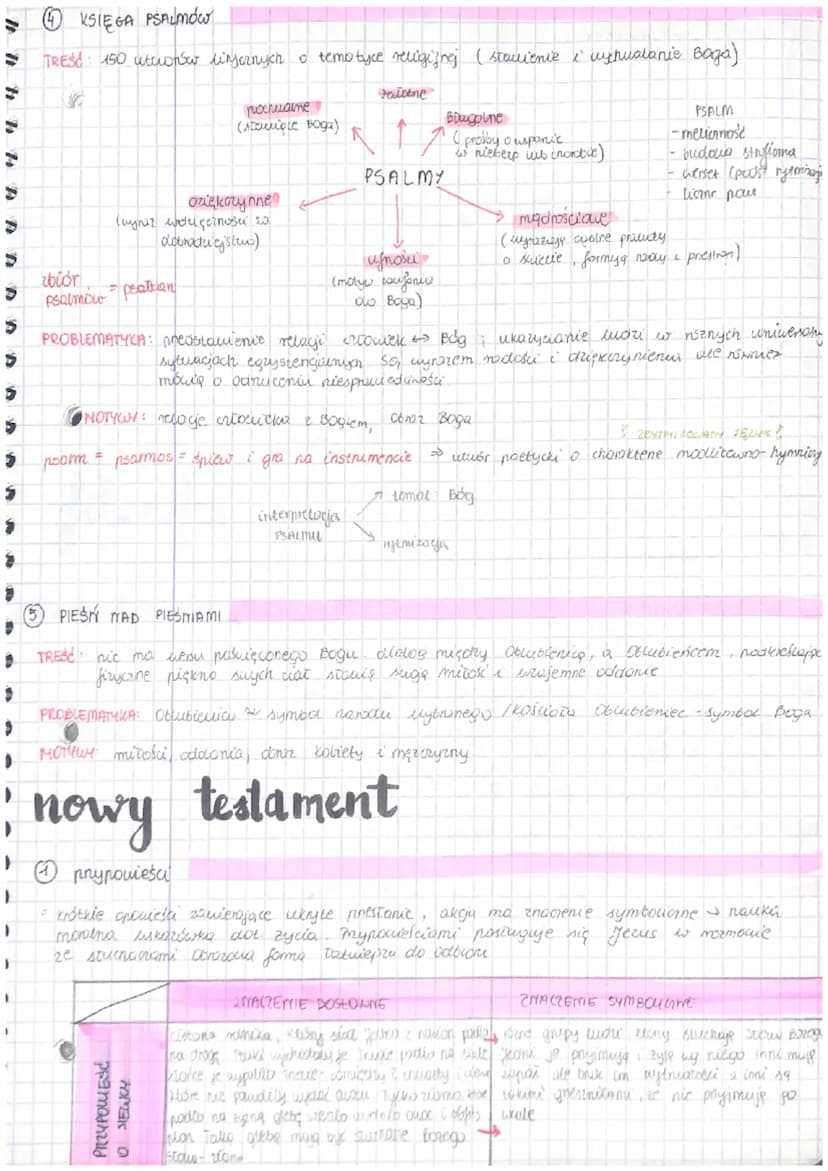 4 KSIĘGA PSALMÓW
TREŚĆ: 150 utworów lirycznych o tematyce religijnej (sławienie i wychwalanie Boga)
żałobne
pochwalne
(sławiące Boga)
błagalne
(prośby o wsparcie
w niebezp lub chorobie)
PSALM
- meliczność
- budowa stroficzna
- werset (podst rytmizacji
- liczne
PSALMY
dziękczynne
(wyraz wdzięczności za
dobrodziejstwo)
mądrościowe
(wyrażają ogólne prawdy
o świecie, formują rady i przestrogi)
ufności
(motyw zaufania
do Boga)
zbiór
psalmów = psałterz
PROBLEMATYKA: przedstawienie relacji człowiek ↔ Bóg; ukazywanie ludzi w różnych uniwersaln
sytuacjach egzystencjalnych są wyrazem radości i dziękczynienia ale również
mówią o odrzuceniu niesprawiedliwości.
MOTYWY: relacje człowieka z Bogiem, obraz Boga
psalm = psalmos = śpiew i gra na instrumencie ⇒ utwór poetycki o charakterze modlitewno-hymniczny
interpretacja
PSALMU
→ temat: Bóg
→ rytmizacja
5 PIEŚŃ NAD PIEŚNIAMI
TREŚĆ: nie ma wersu poświęconego Bogu. dialog między Oblubienicą, a Oblubieńcem, podkreślające
fizyczne piękno swych ciał sławią swoją miłość i wzajemne oddanie
PROBLEMATYKA: Oblubienica ~ symbol narodu wybranego / kościoła Oblubieniec - symbol Boga
MOTYWY miłości, oddania, obraz kobiety i mężczyzny
nowy testament
1 przypowieści
= krótkie opowieści zawierające ukryte przesłanie, akcja ma znaczenie symboliczne → nauka
moralna wskazówka dot życia. Przypowieściami posługuje się Jezus w rozmowie
ze słuchaczami obrazowa forma łatwiejsza do odbioru
ZNACZENIE DOSŁOWNE
ZNACZENIE SYMBOLICZNE
PRZYPOWIEŚĆ
O SIEWCY
historia rolnika, który siał ziarno z nasion padło
na drogę, ptaki wydziobały je inne padło na skałę
słońce je wypaliło inne - pomiędzy chwasty i ciernie
które nie pozwoliły wydać owocu, tylko ziarno które
padło na żyzną glebę wzrosło wydało owoc i obfity
plon Taką glebą mają być słuchacze Bożego
słowa - ziarna
różne grupy ludzi, którzy słuchają słowa Bożego
jedni je przyjmują i żyją wg niego inni mają
zapał ale brak im wytrwałości a inni są
takimi grzesznikami, że nie przyjmują go
wcale